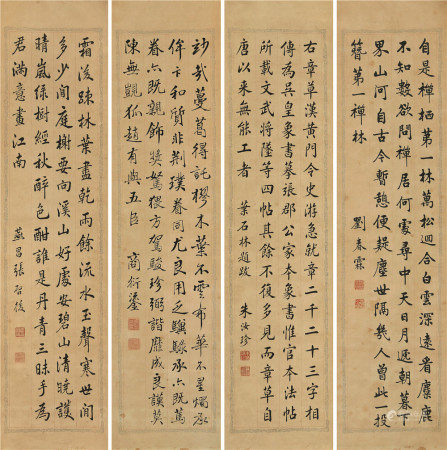 自是禪栖第一林萬松深合白雲深遠看麋鹿
不知數欲問禪居何處尋中天日月迴朝暮下
界山河自古今暫憩便疑塵世隔幾人曾此一投
簪第一禪林
劉春霖
右章草漢黃門令史游急就章二千二十三字相
傳為吳皇象書摹張郡公家本象書惟官本法帖
所載文武將隊等四帖其餘不復多見而章草自
唐以來無能工者 葉石林題跋 朱汝珍
妙哉蔓葛得託樛木葉不雲布華不星燭承
侔卞和質非荊璞眷同尤良用乏驥騄承亦既篤
眷亦既親飾獎駑猥方駕駿珍弼諧靡成良謨莫
陳無覬狐趙有與五臣 商衍鎏
霜後疎林葉盡乾雨餘流水玉聲寒世間
多少閒庭榭要向溪山好處安碧山清曉護
晴嵐綠樹經秋醉色酣誰是丹青三昧手為
君滿意畫江南 張啓後